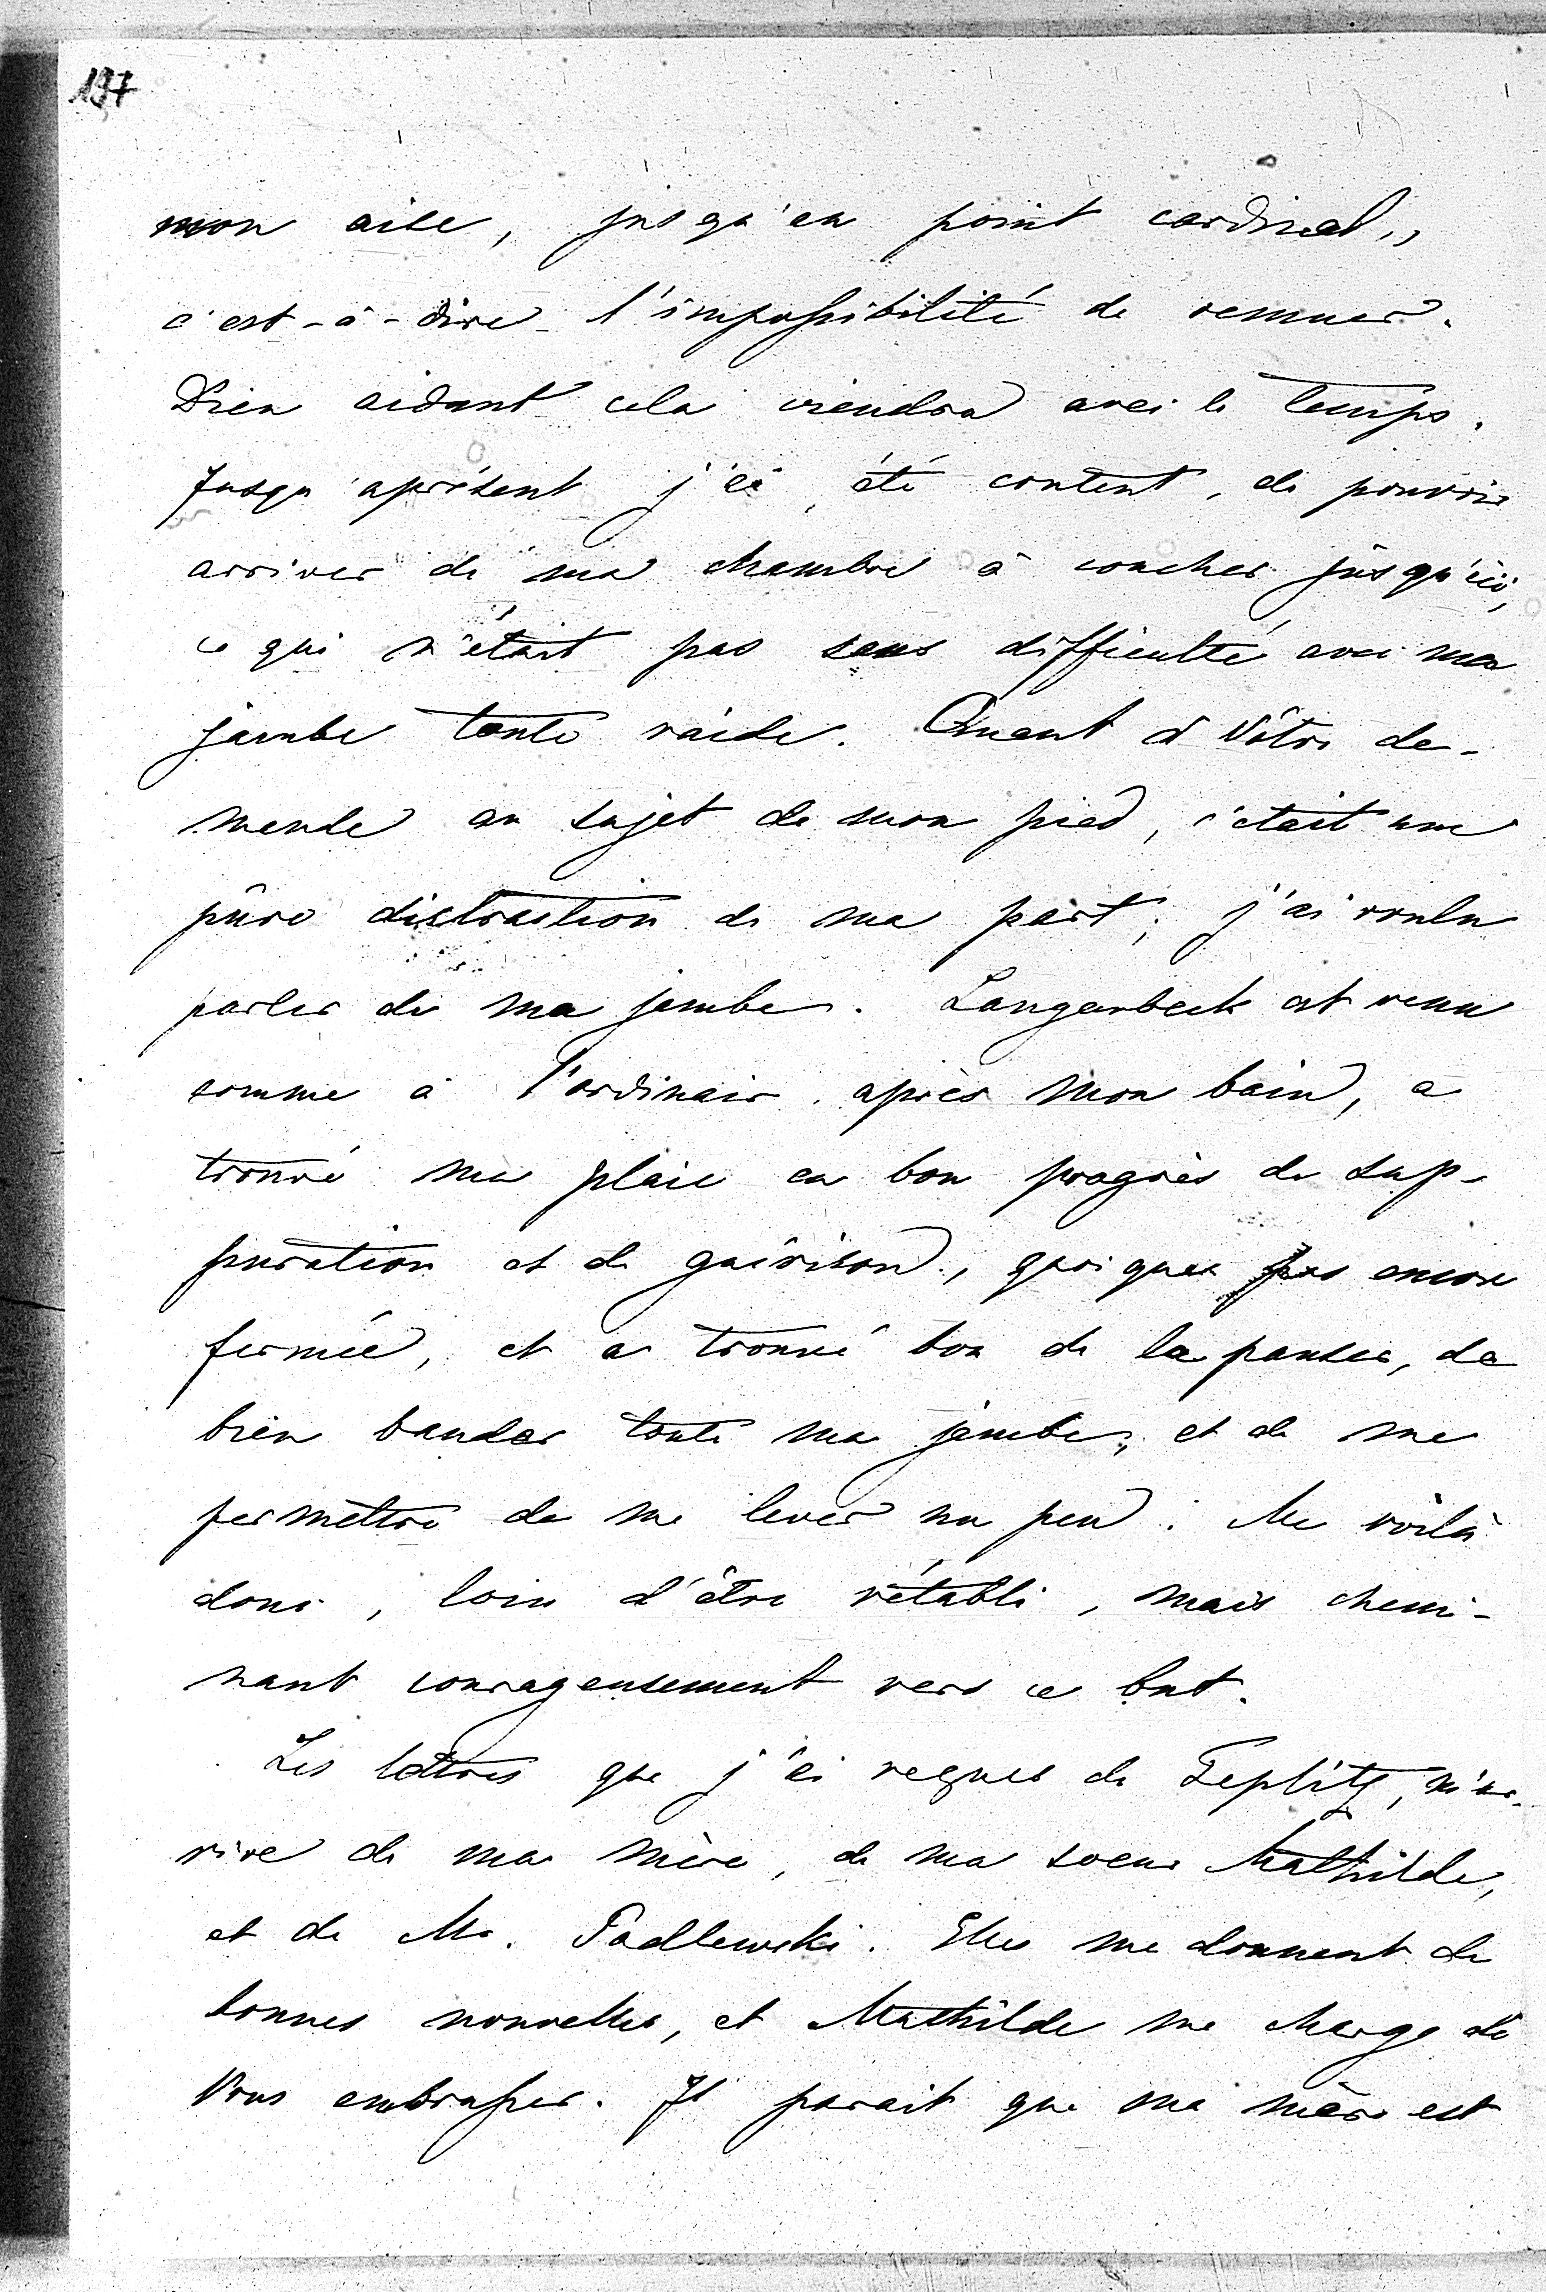 197
mon aise, jusqu'au point cardinal,,
c'est-à-dire l'impossibilité de remuer.
Dieu aidant cela viendra avec le temps.
Jusqu'aprésent j'ai été content, de pouvoir
arriver de ma chambre à coucher jusqu'ici,
ce qui n'était pas sans difficulté avec ma
jambe toute raide. Quant à Vôtre de-
mande au sujet de mon pied, c'était une
pûre distraction de ma part; j'ai voulu
parler de ma jambe. Langenbeck est venu
comme à l'ordinair après mon bain, a
trouvé ma plaie en bon progrès de sup-
puration et de guérison, quoique pas encore
fermée, et a trouvé bon de la panser, de
bien bander toute ma jambe, et de me
permettre de me lever un peu. Me voilà
donc, loin d'être rétabli, mais chemi-
nant courageusement vers ce but.
Les lettres que j'ai reçues de Teplitz,
de ma mère, de ma soeur Mathilde,
et de Mr. Padlewski. Elles me donnent de
bonnes nouvelles, et Mathilde me charge de
Vous embrasser. Il parait que ma mère est